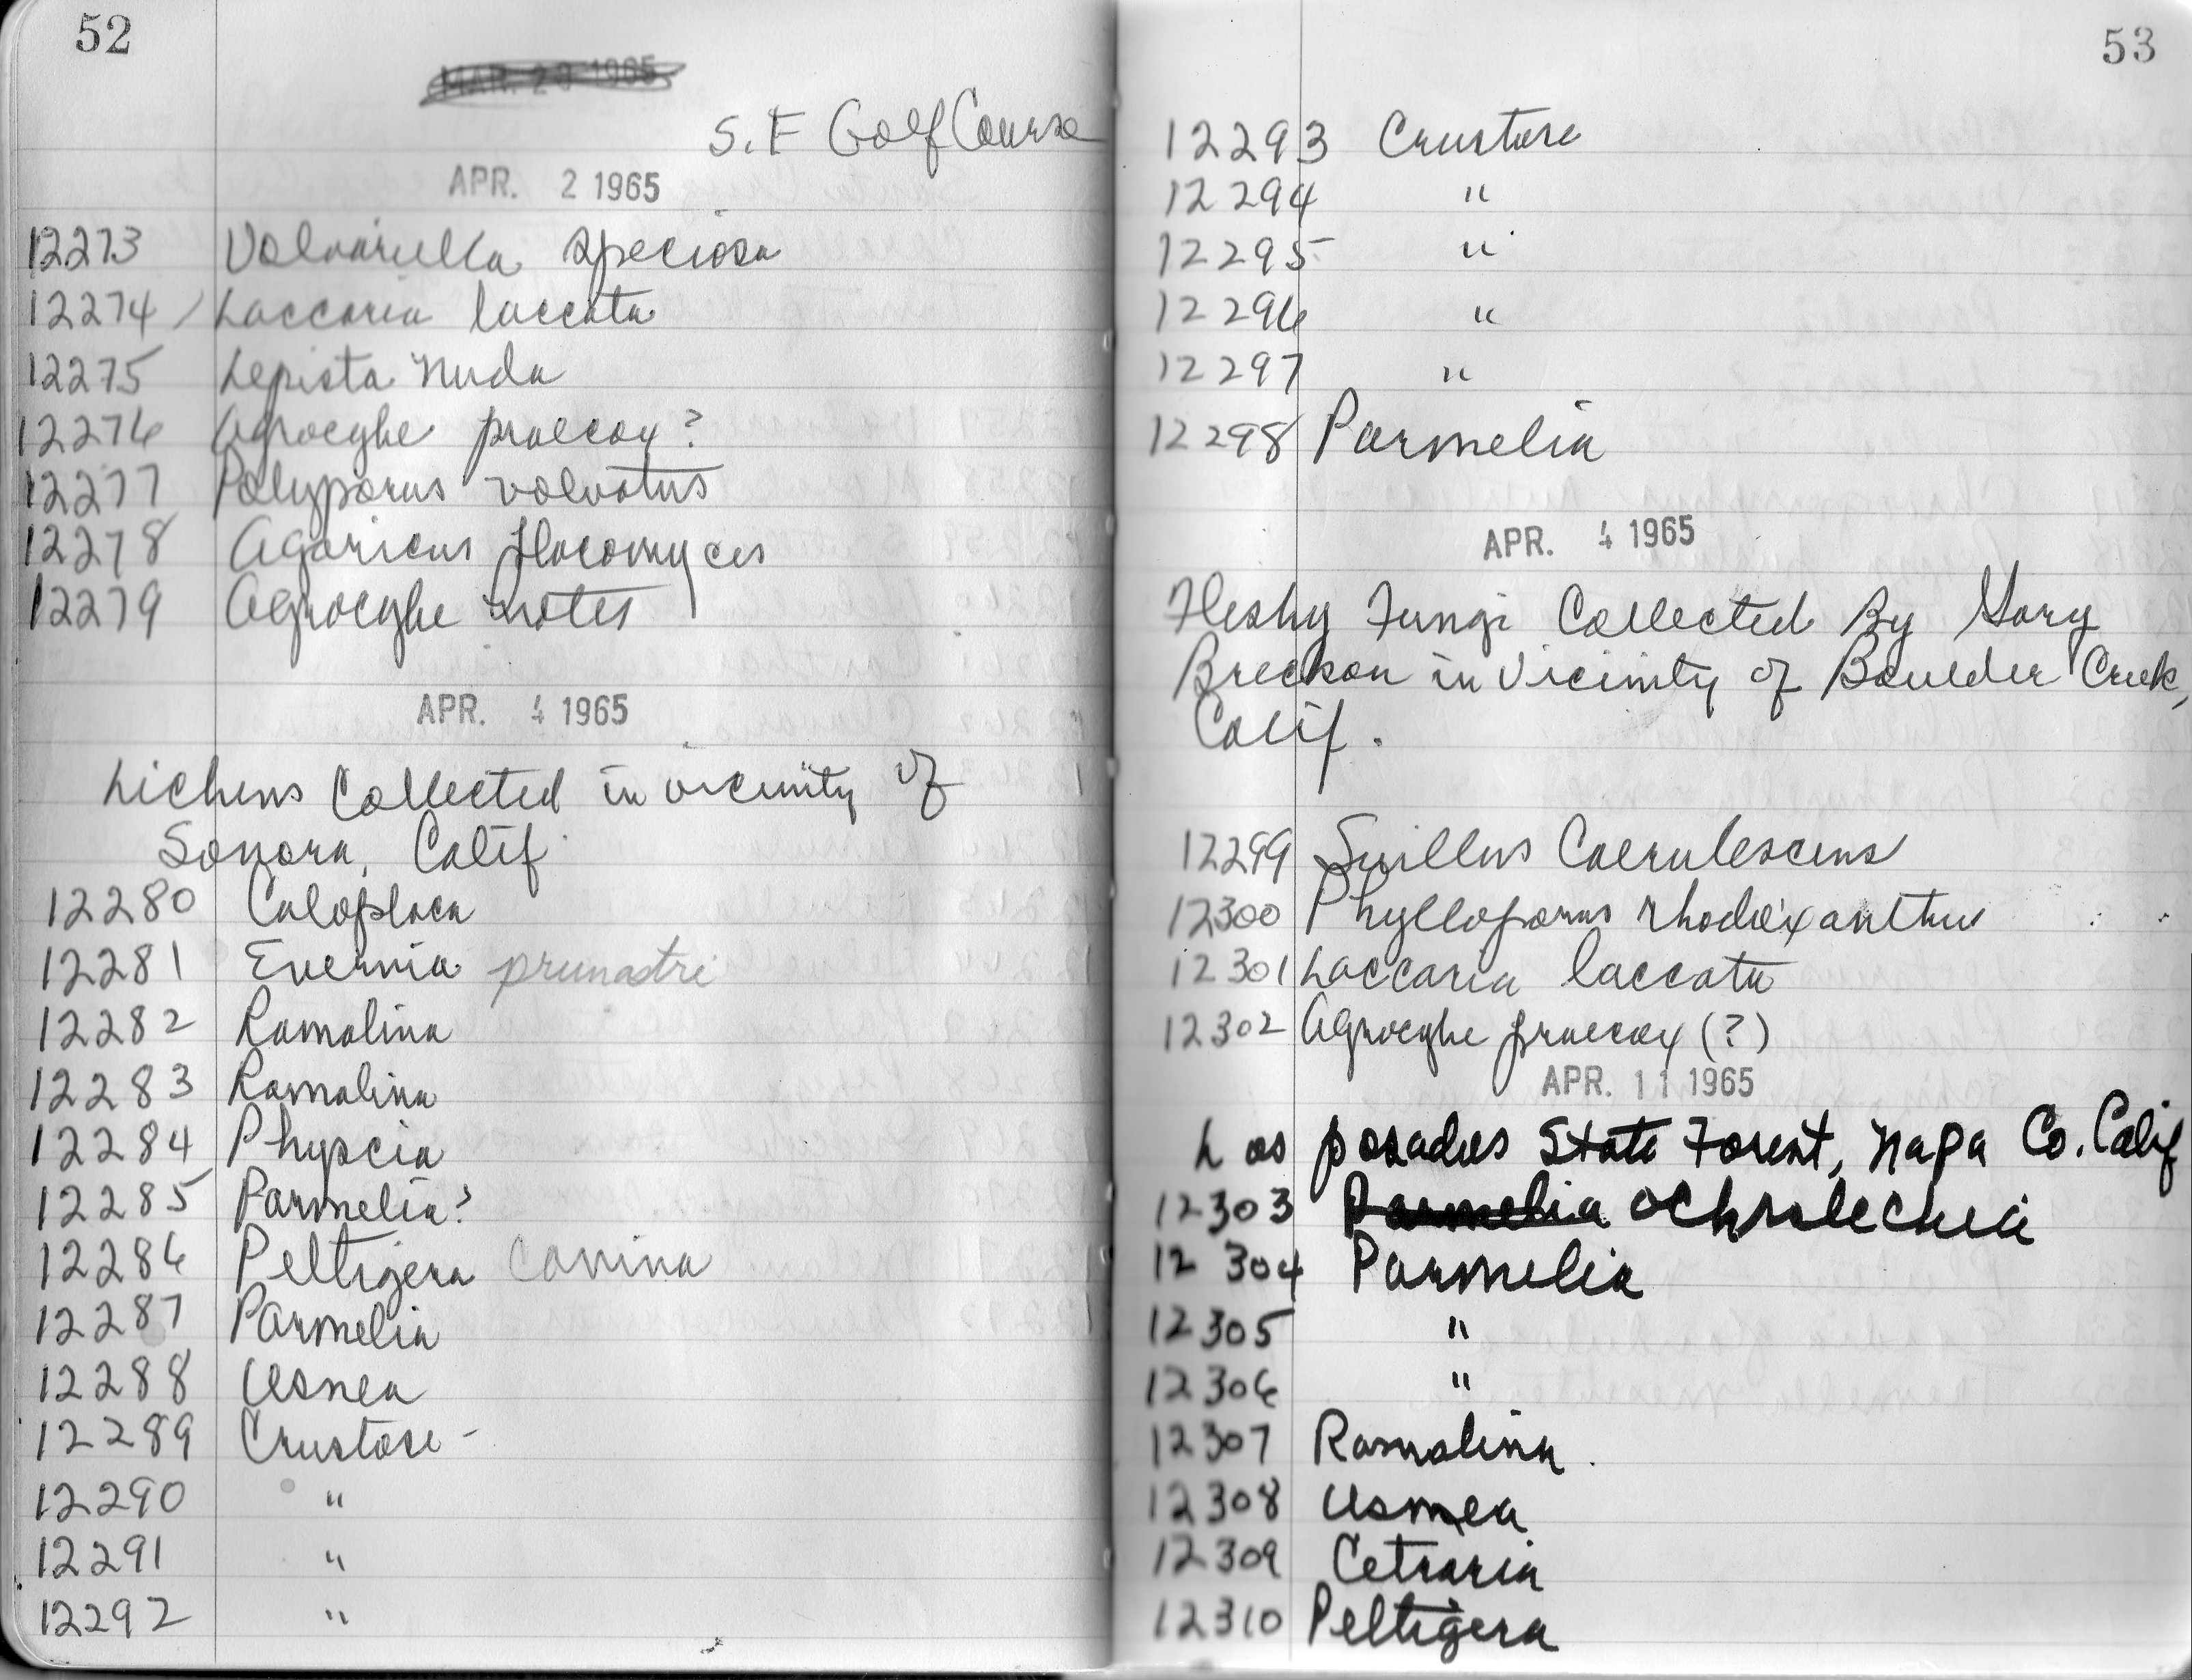 52
MAR. 29 1965
S.F Golf Course
APR. 2 1965
12273 Volvariella speciosa
12274 Laccaria laccata
12275 Lepista nuda
12276 Agrocybe praecox?
12277 Polyporus volvatus
12278 Agaricus
12279 Agrocybe notes
APR. 4 1965
Lichens Collected in vicinity of
Sonora, Calif.
12280 Caloplaca
12281 Evernia prunastri
12282 Ramalina
12283 Ramalina
12284 Physcia
12285 Parmelia?
12286 Peltigera canina
12287 Parmelia
12288 Usnea
12289 Crustose -
12290 "
12291 "
12292 "
53
12293 Crustose
12294 "
12295 "
12296 "
12297 "
12298 Parmelia
APR. 4 1965
Fleshy Fungi Collected By Gary
Breckon in Vicinity of Boulder Creek,
Calif.
12299 Suillus Caerulescens
12300 Phylloporus rhodoxanthus
12301 Laccaria laccata
12302 Agrocybe praecox (?)
APR. 11 1965
Las posadas State Forest, Napa Co. Calif
12303 Parmelia Ochrolechia
12304 Parmelia
12305 "
12306 "
12307 Ramalina.
12308 Usnea
12309 Cetraria
12310 Peltigera